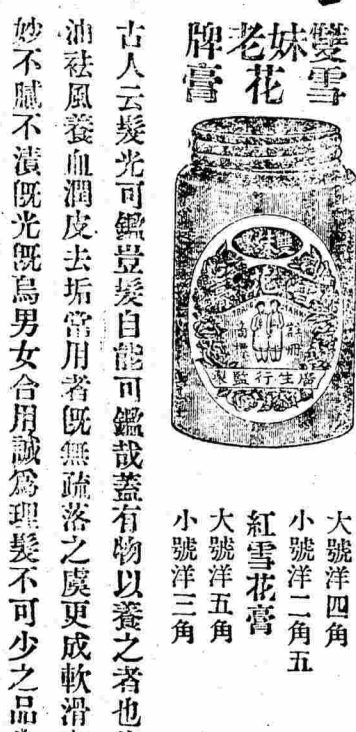 雙妹老牌
雪花膏
廣生行監製
大號洋四角
小號洋二角五
紅雪花膏
大號洋五角
小號洋三角
古人云髮光可鑑豈髮自能可鑑哉蓋有物以養之者也
油祛風養血潤皮去垢常用者旣無疏落之虞更成軟滑
妙不膩不漬旣光旣烏男女合用誠爲理髮不可少之品